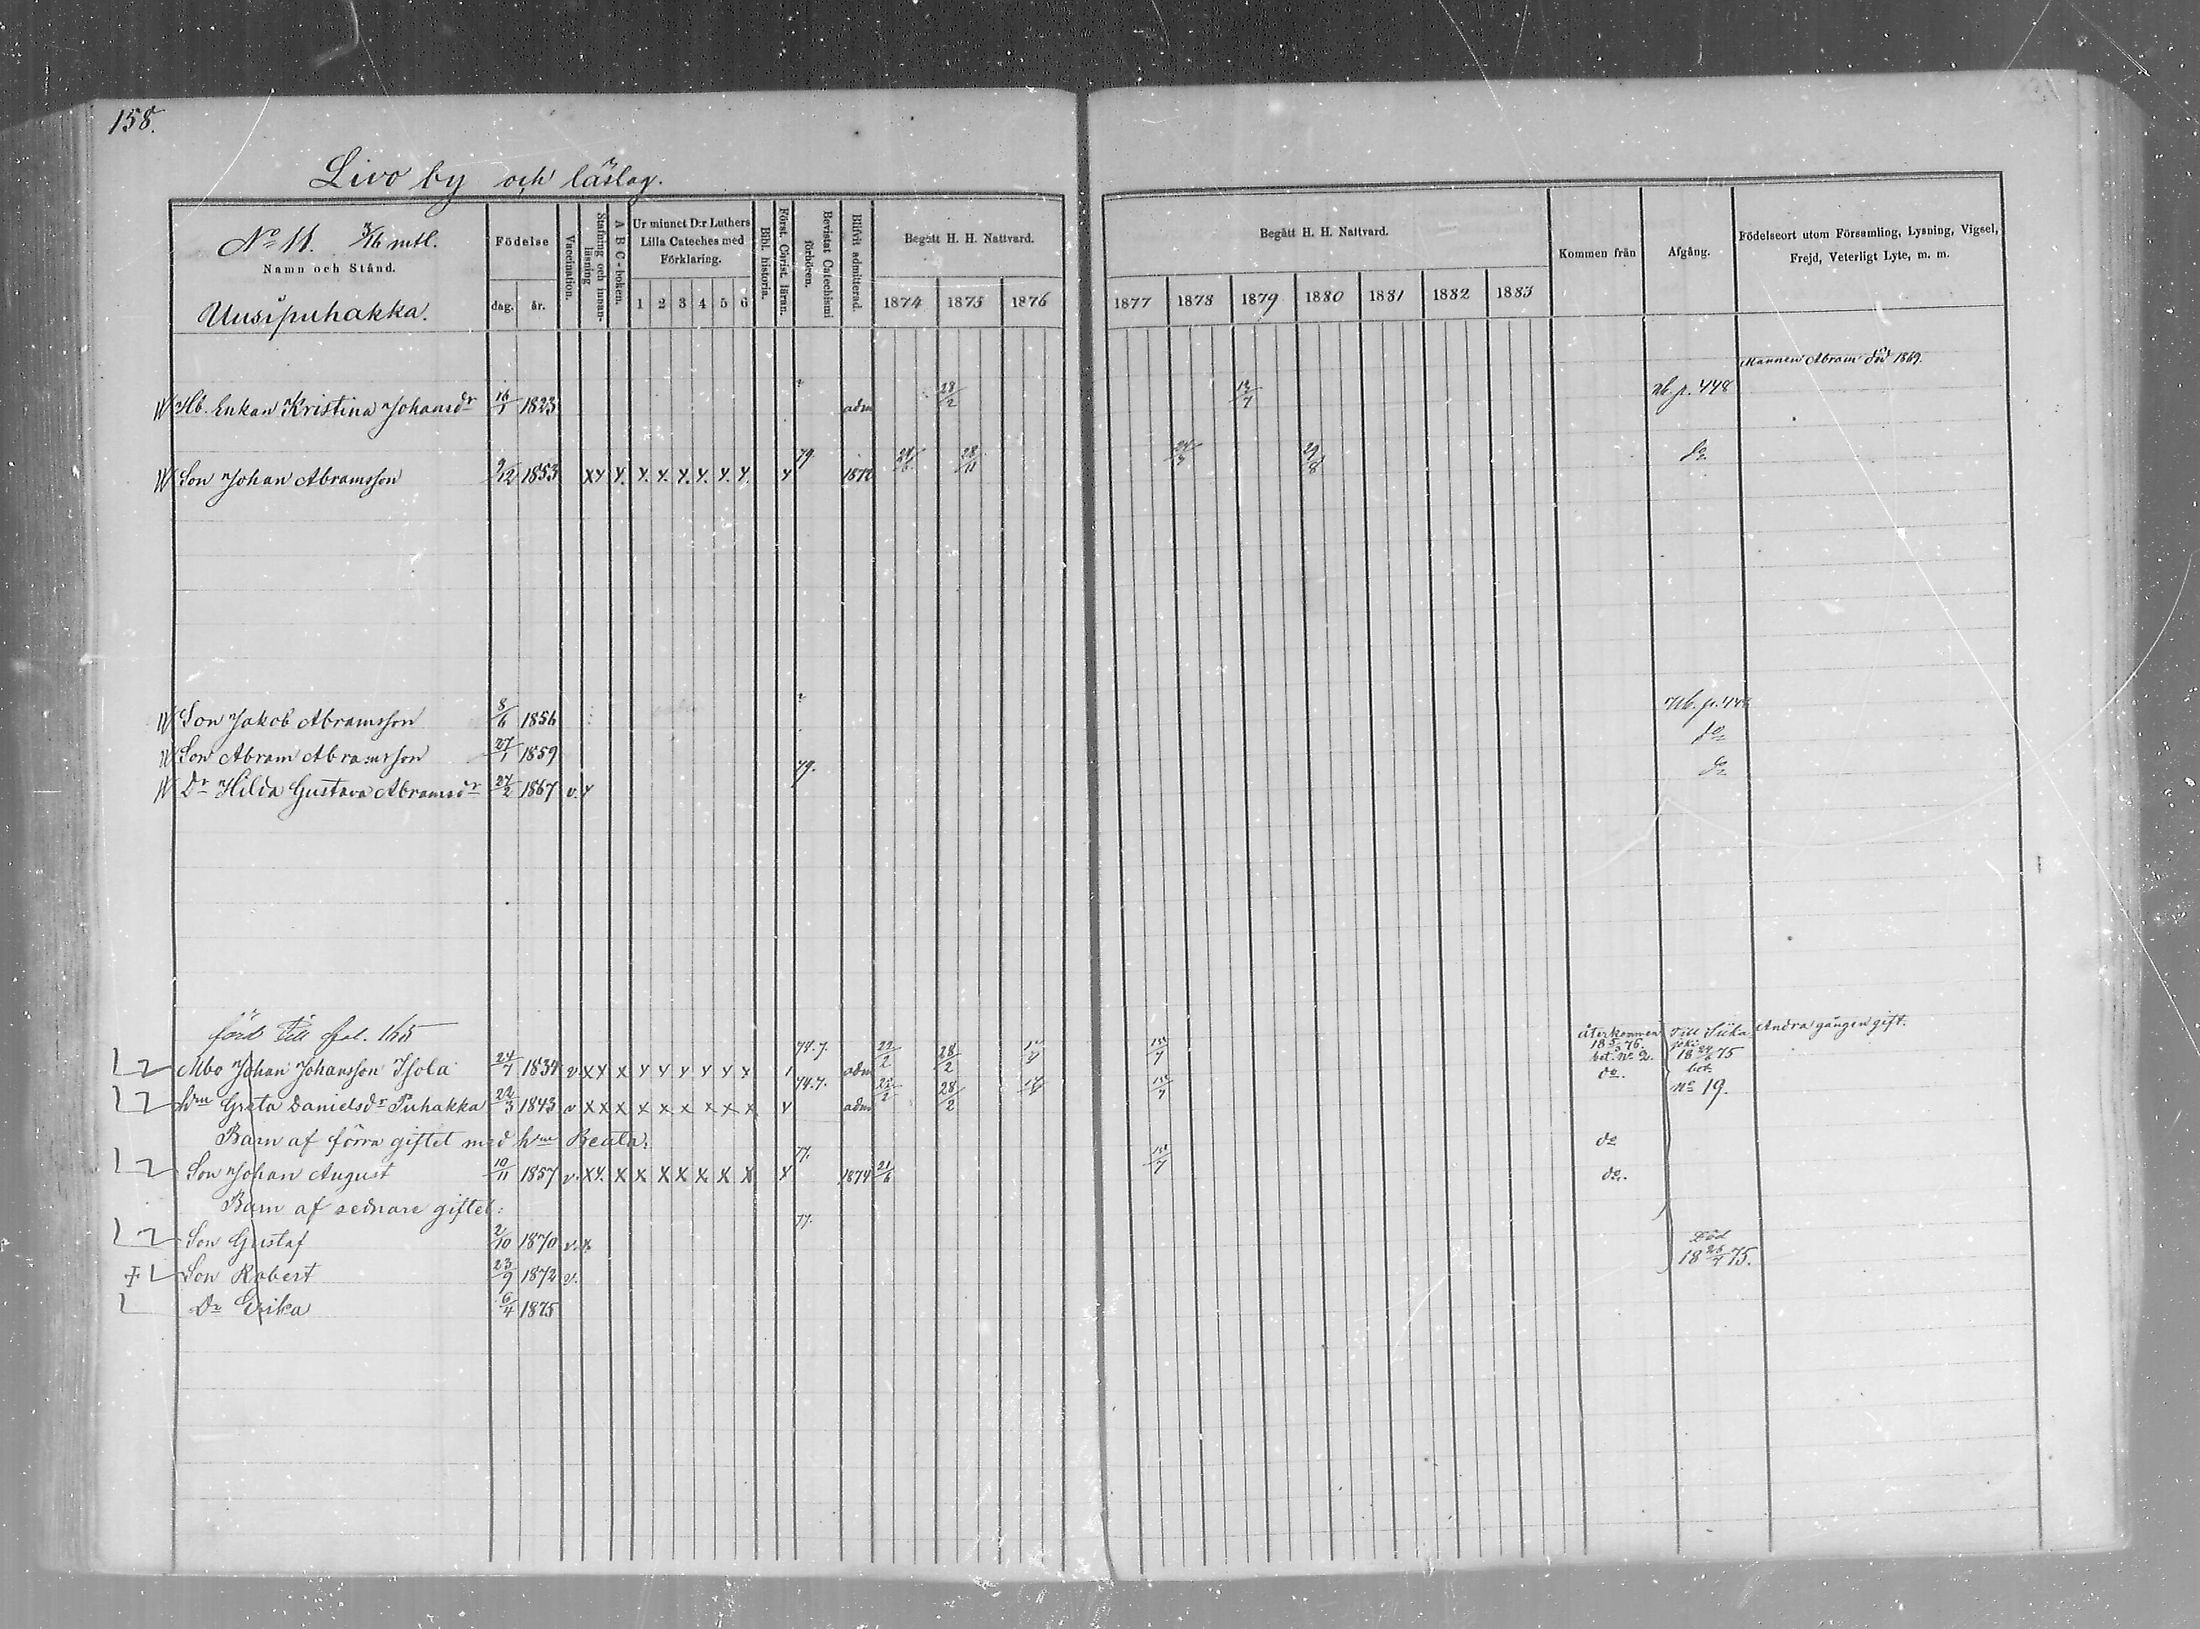 158.
Livo by och läslag.
No 11. 3/16 mtl.
Namn och Stånd.
Uusipuhakka.
Födelse
dag. år.
Vaccination.
Stafning och innan-läsning
A B C-boken.
Ur minnet D:r Luthers Lilla Cateches med Förklaring.
1 2 3 4 5 6
Bibl. historia.
Först. Christ. läran.
Bevistat Catechismi förhören.
Blifvit admitterad.
Begått H. H. Nattvard.
1874 1875 1876
Begått H. H. Nattvard.
1877 1878 1879 1880 1881 1882 1883
Kommen från
Afgång.
Födelseort utom Församling, Lysning, Vigsel, Frejd, Veterligt Lyte, m. m.
Mannen Abram död 1869.
Hb. Enkan Kristina Johansdr 16/1 1823 adm 28/2 13/7 Ub p. 448
Son Johan Abramsson 9/12 1853 x y y. y. x. y. y. y. y. y 79. 1872 28/11 29/8 do
Son Jakob Abramsson 8/6 1856 Ub. p. 448
Son Abram Abramsson 27/1 1859 do
Dr Hilda Gustava Abramsdr 24/2 1867 v. y 79. do
förd till Pal. 165
Mbo Johan Johansson Isola 24/7 1834 v x y x y y y y y y adm 74.7. 22/2 28/2 Återkommen 18 5/3 76. bet. No 2. Till Siika joki 18 24/6 75 Andra gången gift.
hm Greta Danielsdr Puhakka 22/3 1843 v x x x x x x x x x y 74.7. adm 22/2 28/2 do. bet. no 19.
Barn af förra giftet med hm Beata: do
Son Johan August 10/11 1857 v. x y. x x x x x x x y 77. 1874 21/6 do.
Barn af sednare giftet:
Son Gustaf 2/10 1870 v. x 77.
Son Robert 23/9 1872 v. Död 18 26/4 75.
Dr Erika 6/4 1875